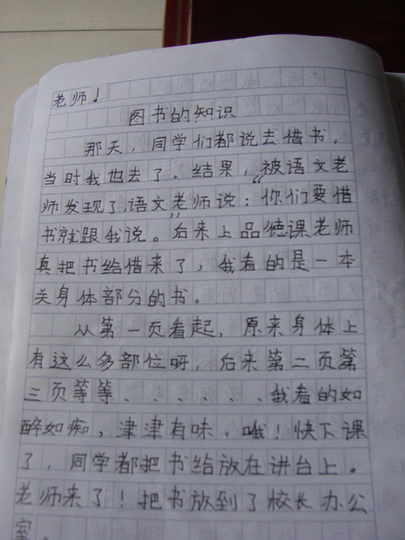 老师！
图书的知识
那天，同学们都说去借书，
当时我也去了。结果，被语文老
师发现了，语文老师说：“你们要借
书就跟我说。”后来上品德课老师
真把书给借来了，我看的是一本
关身体部分的书。
从第一页看起，原来身体上
有这么多部位呀，后来第二页第
三页等等、、、、、、我看的如
醉如痴，津津有味。哦！快下课
了，同学都把书给放在讲台上。
老师来了！把书放到了校长办公
室。